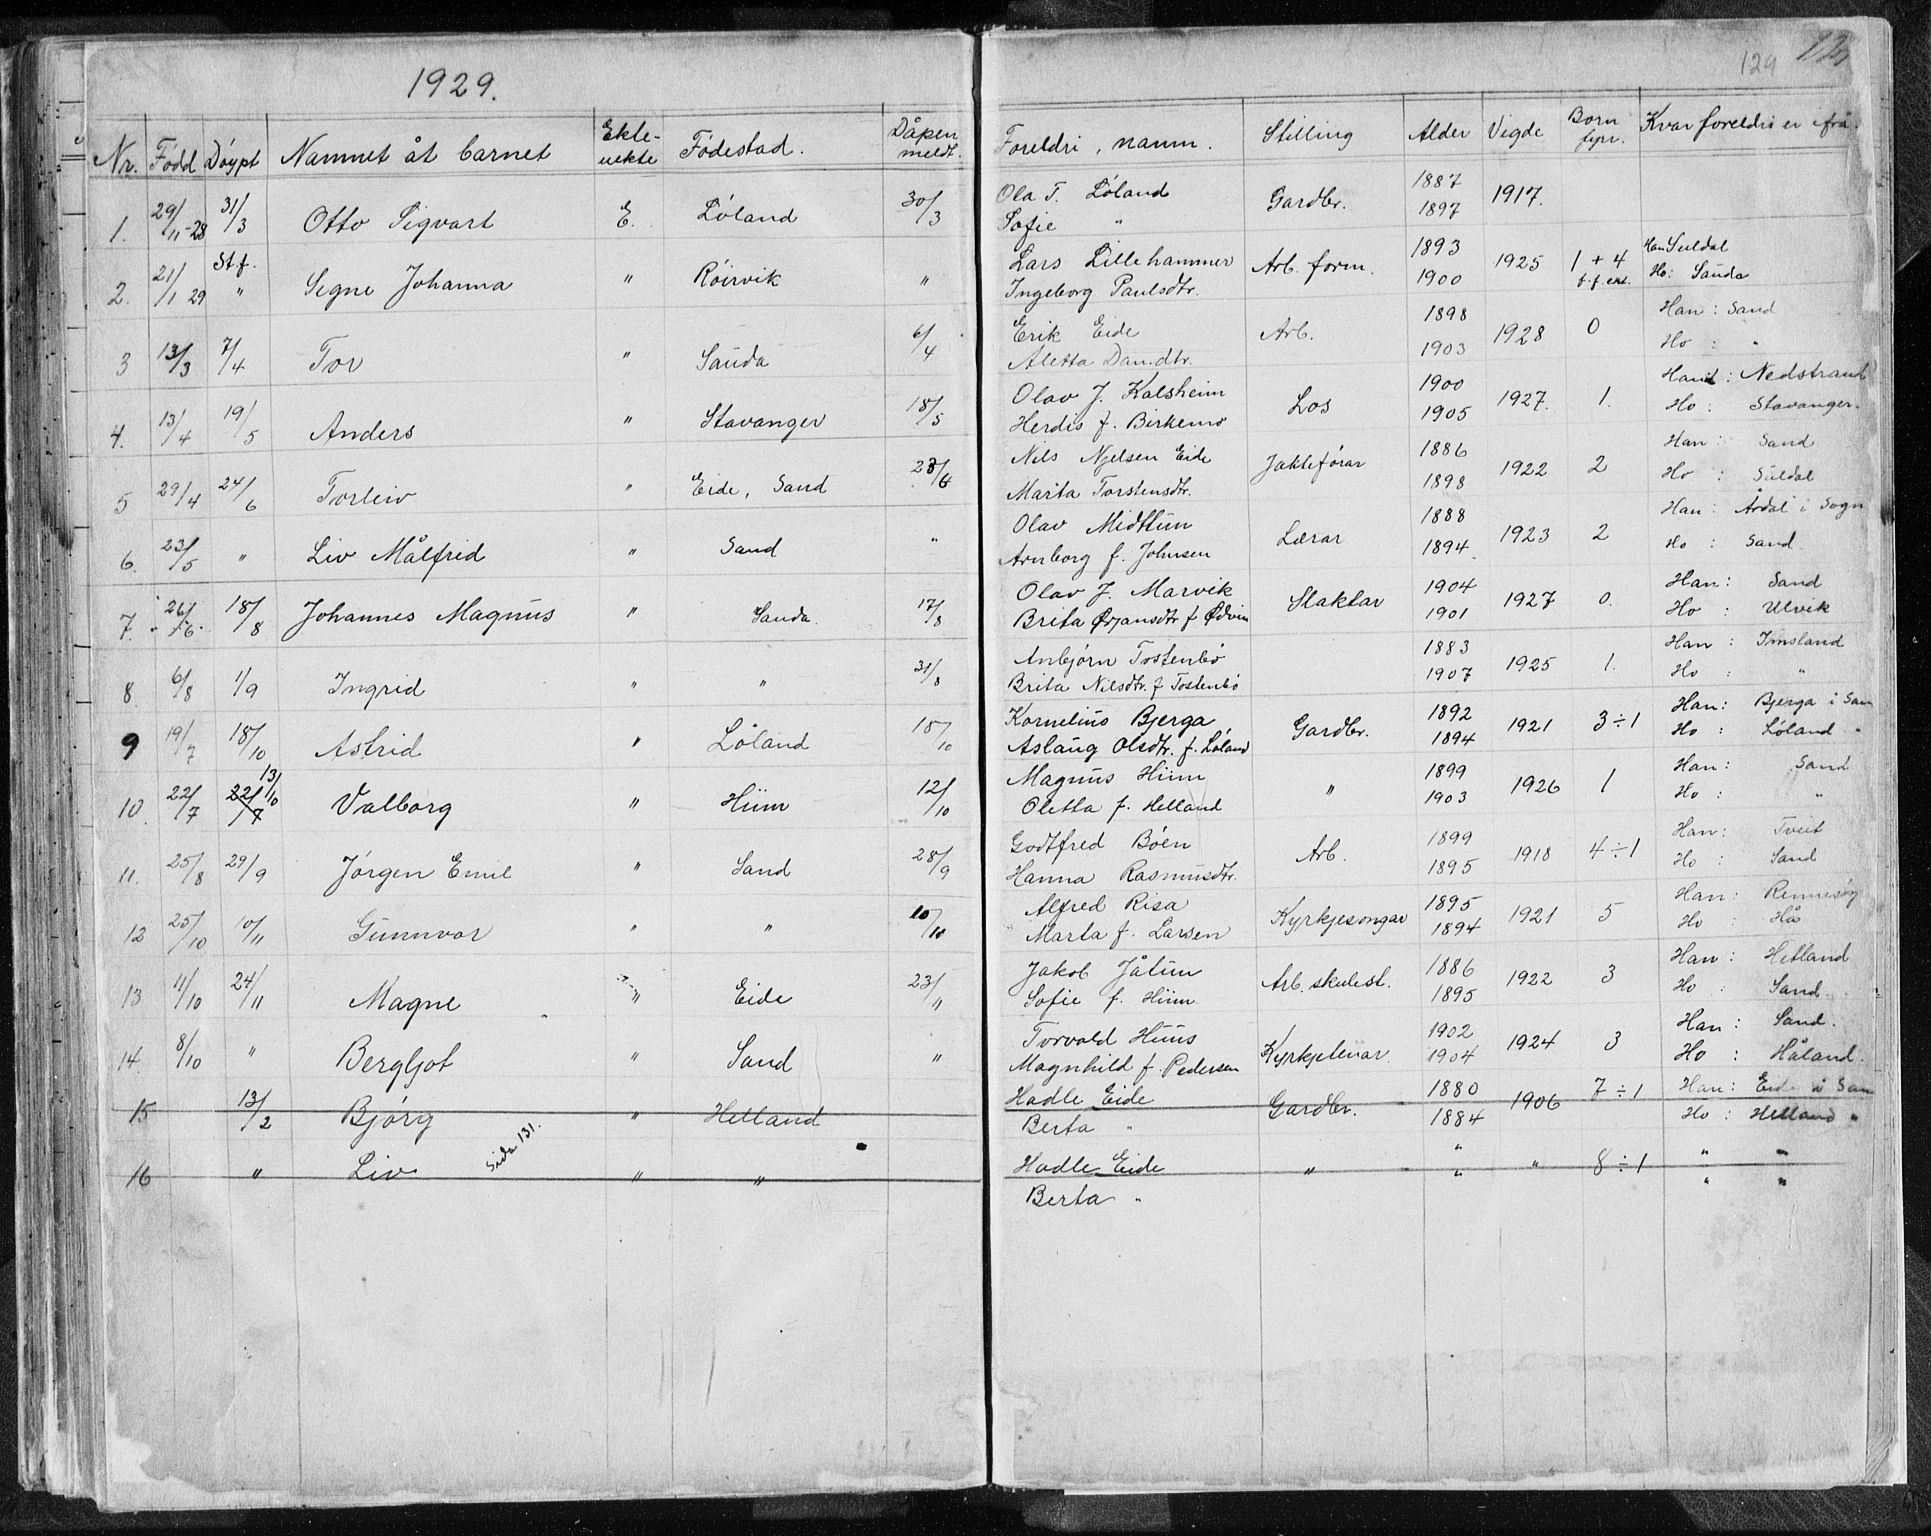 1929.
129
Nr. Född Döypt Namnet åt barnet Ekte-uekte Födestad. Dåpen meldt. Foreldri, namn. Stilling Alder Vigde Born fyrr. Kvar foreldri er ifrå.
1. 29/11-28 31/3 Otto Sigvart E. Löland 30/3 Ola T. Löland Gardbr. 1887 1917.
Sofie " 1897
2. 21/1 29 St.f. " Signe Johanna " Röirvik " Lars Lillehammer Arb. form. 1893 1925 1 + 4 Han Suldal
Ingeborg Paulsdtr. 1900 f. f. ekt. Ho: Sauda
3 13/3 7/4 Tor " Sauda 6/4 Erik Eide Arb. 1898 1928 0 Han: Sand
Aletta Dan.dtr. 1903 Ho: "
4. 13/4 19/5 Anders " Stavanger 18/5 Olav J. Kalsheim Los 1900 1927. 1. Han: Nedstrand
Herdis f. Birkemo 1905 Ho: Stavanger.
5 29/4 24/6 Torleiv " Eide, Sand 23/6 Nils Njelsen Eide Jakteförar 1886 1922 2 Han: Sand
Marita Torstensdtr. 1898 Ho: Suldal
6. 23/5 " Liv Målfrid " Sand " Olav Midttun Lærar 1888 1923 2 Han: Årdal i Sogn
Arnborg f. Johnsen 1894 Ho: Sand.
7. 26/6 18/8 Johannes Magnus " Sauda. 17/8 Olav J. Marvik Slaktar 1904 1927 0. Han: Sand
Brita Ørjansdtr f. Ødvin 1901 Ho: Ulvik
8 6/8 1/9 Ingrid " " 31/8 Anbjørn Tostenbö 1883 1925 1. Han: Imsland
Brita Nilsdtr. f Tostenbö 1907 Ho: "
9 19/7 18/10 Astrid " Löland 18/10 Kornelius Bjerga Gardbr. 1892 1921 3÷1 Han: Bjerga i San
Aslaug Olsdtr. f. Löland 1894 Ho: Löland "
10. 22/7 22/7 13/10 Valborg " Hiim 12/10 Magnus Hiim " 1899 1926 1 Han: Sand
Oletta f. Helland 1903 Ho: "
11. 25/8 29/9 Jörgen Emil " Sand 28/9 Godtfred Böen Arb. 1899 1918 4÷1 Han: Tveit
Hanna Rasmusdtr. 1895 Ho: Sand
12 25/10 10/11 Gunnvor " " 10/10 Alfred Risa Kyrkjesongar 1895 1921 5 Han: Rennesöy
Marta f. Larsen 1894 Ho: Hå
13 11/10 24/11 Magne " Eide 23/11 Jakob Jåtun Arb. skulest. 1886 1922 3 Han: Hetland
Sofie f. Hiim 1895 Ho: Sand.
14. 8/10 " Bergljot " Sand " Torvald Huus Kyrkjetenar. 1902 1924 3 Han: Sand.
Magnhild f. Pedersen 1904 Ho: Håland.
15 13/2 Bjórg " Helland Hadle Eide Gardbr. 1880 1906 7÷1 Han: Eide i San
Berta " 1884 Ho: Helland "
Sida 131.
16 " Liv " " Hadle Eide " " " 8÷1 " "
Berta " " " "